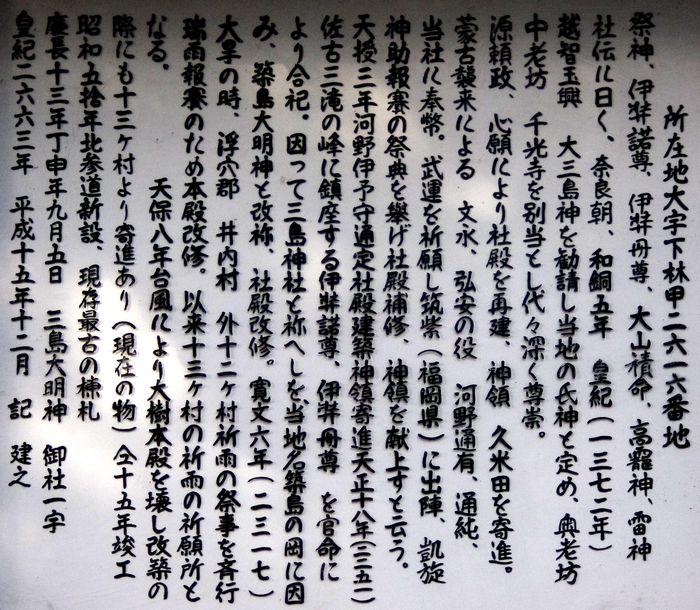 所在地大字下林甲二六一六番地
祭神、伊弉諾尊、伊弉冊尊、大山積命、高龗神、雷神
社伝に曰く、奈良朝、和銅五年　皇紀(一三七二年)
越智玉興　大三島神を勧請し当地の氏神と定め、奥老坊
中老坊　千光寺を別当とし代々深く尊崇。
源頼政、心願により社殿を再建、神領　久米田を寄進。
蒙古襲来による　文永、弘安の役　河野通有、通純、
当社に奉幣。武運を祈願し筑紫(福岡県)に出陣、凱旋
神助報賽の祭典を挙げ社殿補修、神領を献上すと云う。
天授三年河野伊予守通定社殿建築神領寄進天正十八年(二二五一)
佐古三滝の峰に鎮座する伊弉諾尊、伊弉冊尊　を官命に
より合祀。因って三島神社と祢へしを、当地名築島の岡に因
み、築島大明神と改祢、社殿改修。寛文六年(二三一七)
大旱の時、浮穴郡　井内村　外十二ヶ村祈雨の祭事を斉行
瑞雨報賽のため本殿改修。以来十三ヶ村の祈雨の祈願所と
なる。　天保八年台風により大樹本殿を壊し改築の
際にも十三ヶ村より寄進あり(現在の物)仝十五年竣工
昭和五拾年北参道新設、現存最古の棟札
慶長十三年丁申年九月五日　三島大明神　御社一宇
皇紀二六六三年　平成十五年十二月　記　建之